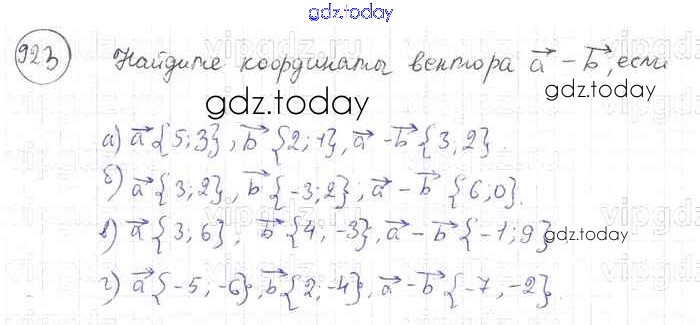 gdz.today
923 Найдите координаты вектора a⃗ - b⃗, если
gdz.today
gdz.today
а) a⃗ {5; 3}, b⃗ {2; 1}, a⃗ - b⃗ {3; 2}
б) a⃗ {3; 2}, b⃗ {-3; 2}; a⃗ - b⃗ {6; 0}.
в) a⃗ {3; 6}; b⃗ {4; -3}, a⃗ - b⃗ {-1; 9}
gdz.today
г) a⃗ {-5; -6}, b⃗ {2; -4}, a⃗ - b⃗ {-7; -2}.